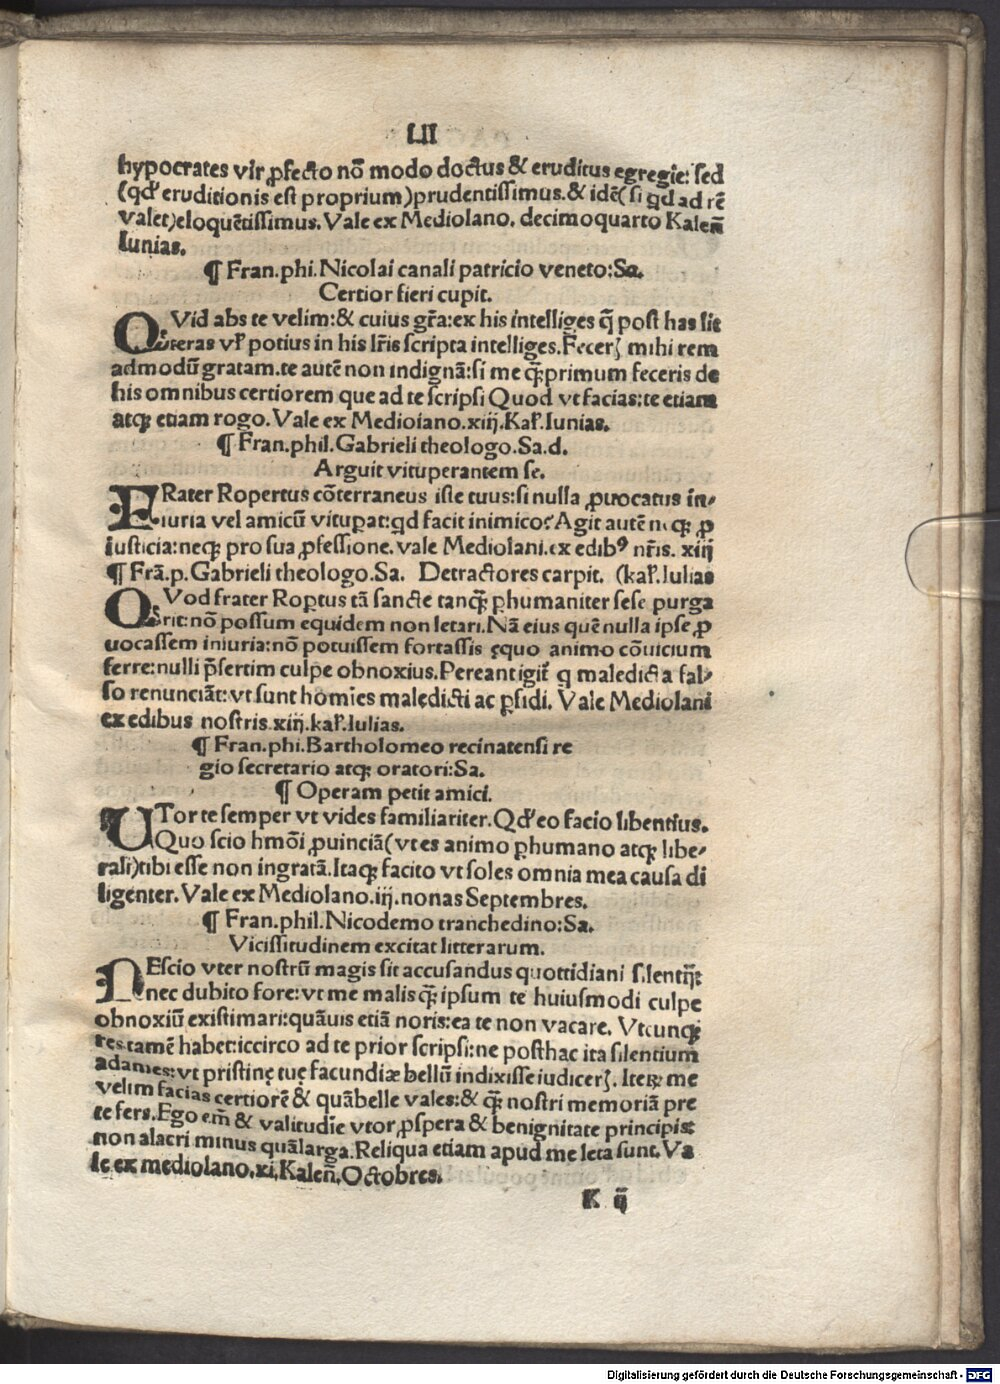 LII
hypocrates vir ꝓfecto nō modo doctus & eruditus egregie: sed
(qđ eruditionis est proprium)prudentissimus.& idē(si qd ad rē
valet)eloquētissimus. Vale ex Mediolano. decimoquarto Kaleñ
Iunias.
¶ Fran.phi.Nicolai canali patricio veneto:Sa.
Certior fieri cupit.
QVid abs te velim:& cuius gr̃a:ex his intelliges q̄ post has lit
teras vł potius in his lr̃is scripta intelliges.Fecerꝭ mihi rem
admodū gratam.te autē non indignā:si me qꝫ̄primum feceris de
his omnibus certiorem que ad te scripsi Quod vt facias:te etiam
atqꝫ etiam rogo. Vale ex Mediolano.xiij.Kał.Iunias.
¶ Fran.phil.Gabrieli theologo.Sa.d.
Arguit vituperantem se.
FRater Ropertus cōterraneus iste tuus:si nulla ꝓuocatus in⸗
iuria vel amicū vituꝑat:qd facit inimico? Agit autē neqꝫ ꝓ
iusticia:neqꝫ pro sua ꝓfessione. vale Mediolani.ex edibꝰ nr̃is. xiij
¶ Frā.p.Gabrieli theologo.Sa. Detractores carpit. (kał.Iulias
QVod frater Roptus tā sancte tanqꝫ̄ ꝑhumaniter sese purga
rit:nō possum equidem non letari.Nā eius quē nulla ipse ꝓ
uocassem iniuria:nō potuissem fortassis ęquo animo cōuicium
ferre:nulli p̄sertim culpe obnoxius.Pereant igit̃ q maledicta fal⸗
so renunciāt:vt sunt homīes maledicti ac ꝑfidi. Vale Mediolani
ex edibus nostris.xiij.kał.Iulias.
¶ Fran.phi.Bartholomeo recinatensi re
gio secretario atqꝫ oratori:Sa.
¶ Operam petit amici.
UTor te semper vt vides familiariter.Qđ eo facio libentius.
Quo scio hmōi ꝓuinciā(vt es animo ꝑhumano atqꝫ libe⸗
rali)tibi esse non ingratā.Itaqꝫ facito vt soles omnia mea causa di
ligenter. Vale ex Mediolano.iij.nonas Septembres.
¶ Fran.phil.Nicodemo tranchedino:Sa.
Vicissitudinem excitat litterarum.
NEscio vter nostrū magis sit accusandus quottidiani silentij:
nec dubito fore:vt me malis qꝫ̄ ipsum te huiusmodi culpe
obnoxiū existimari:quāuis etiā noris:ea te non vacare. Vtcunqꝫ
res tamē habet:iccirco ad te prior scripsi:ne posthac ita silentium
adames:vt pristinę tuę facundiæ bellū indixisse iudicerꝭ. Iteꝝ me
velim facias certiorē & quābelle vales:& qꝫ̄ nostri memoriā pre
te fers. Ego em̄ & valitudīe vtor ꝓspera & benignitate principis:
non alacri minus quālarga.Reliqua etiam apud me leta sunt. Va
le ex mediolano.xi.Kaleñ.Octobres.
K ij
Digitalisierung gefördert durch die Deutsche Forschungsgemeinschaft - DFG